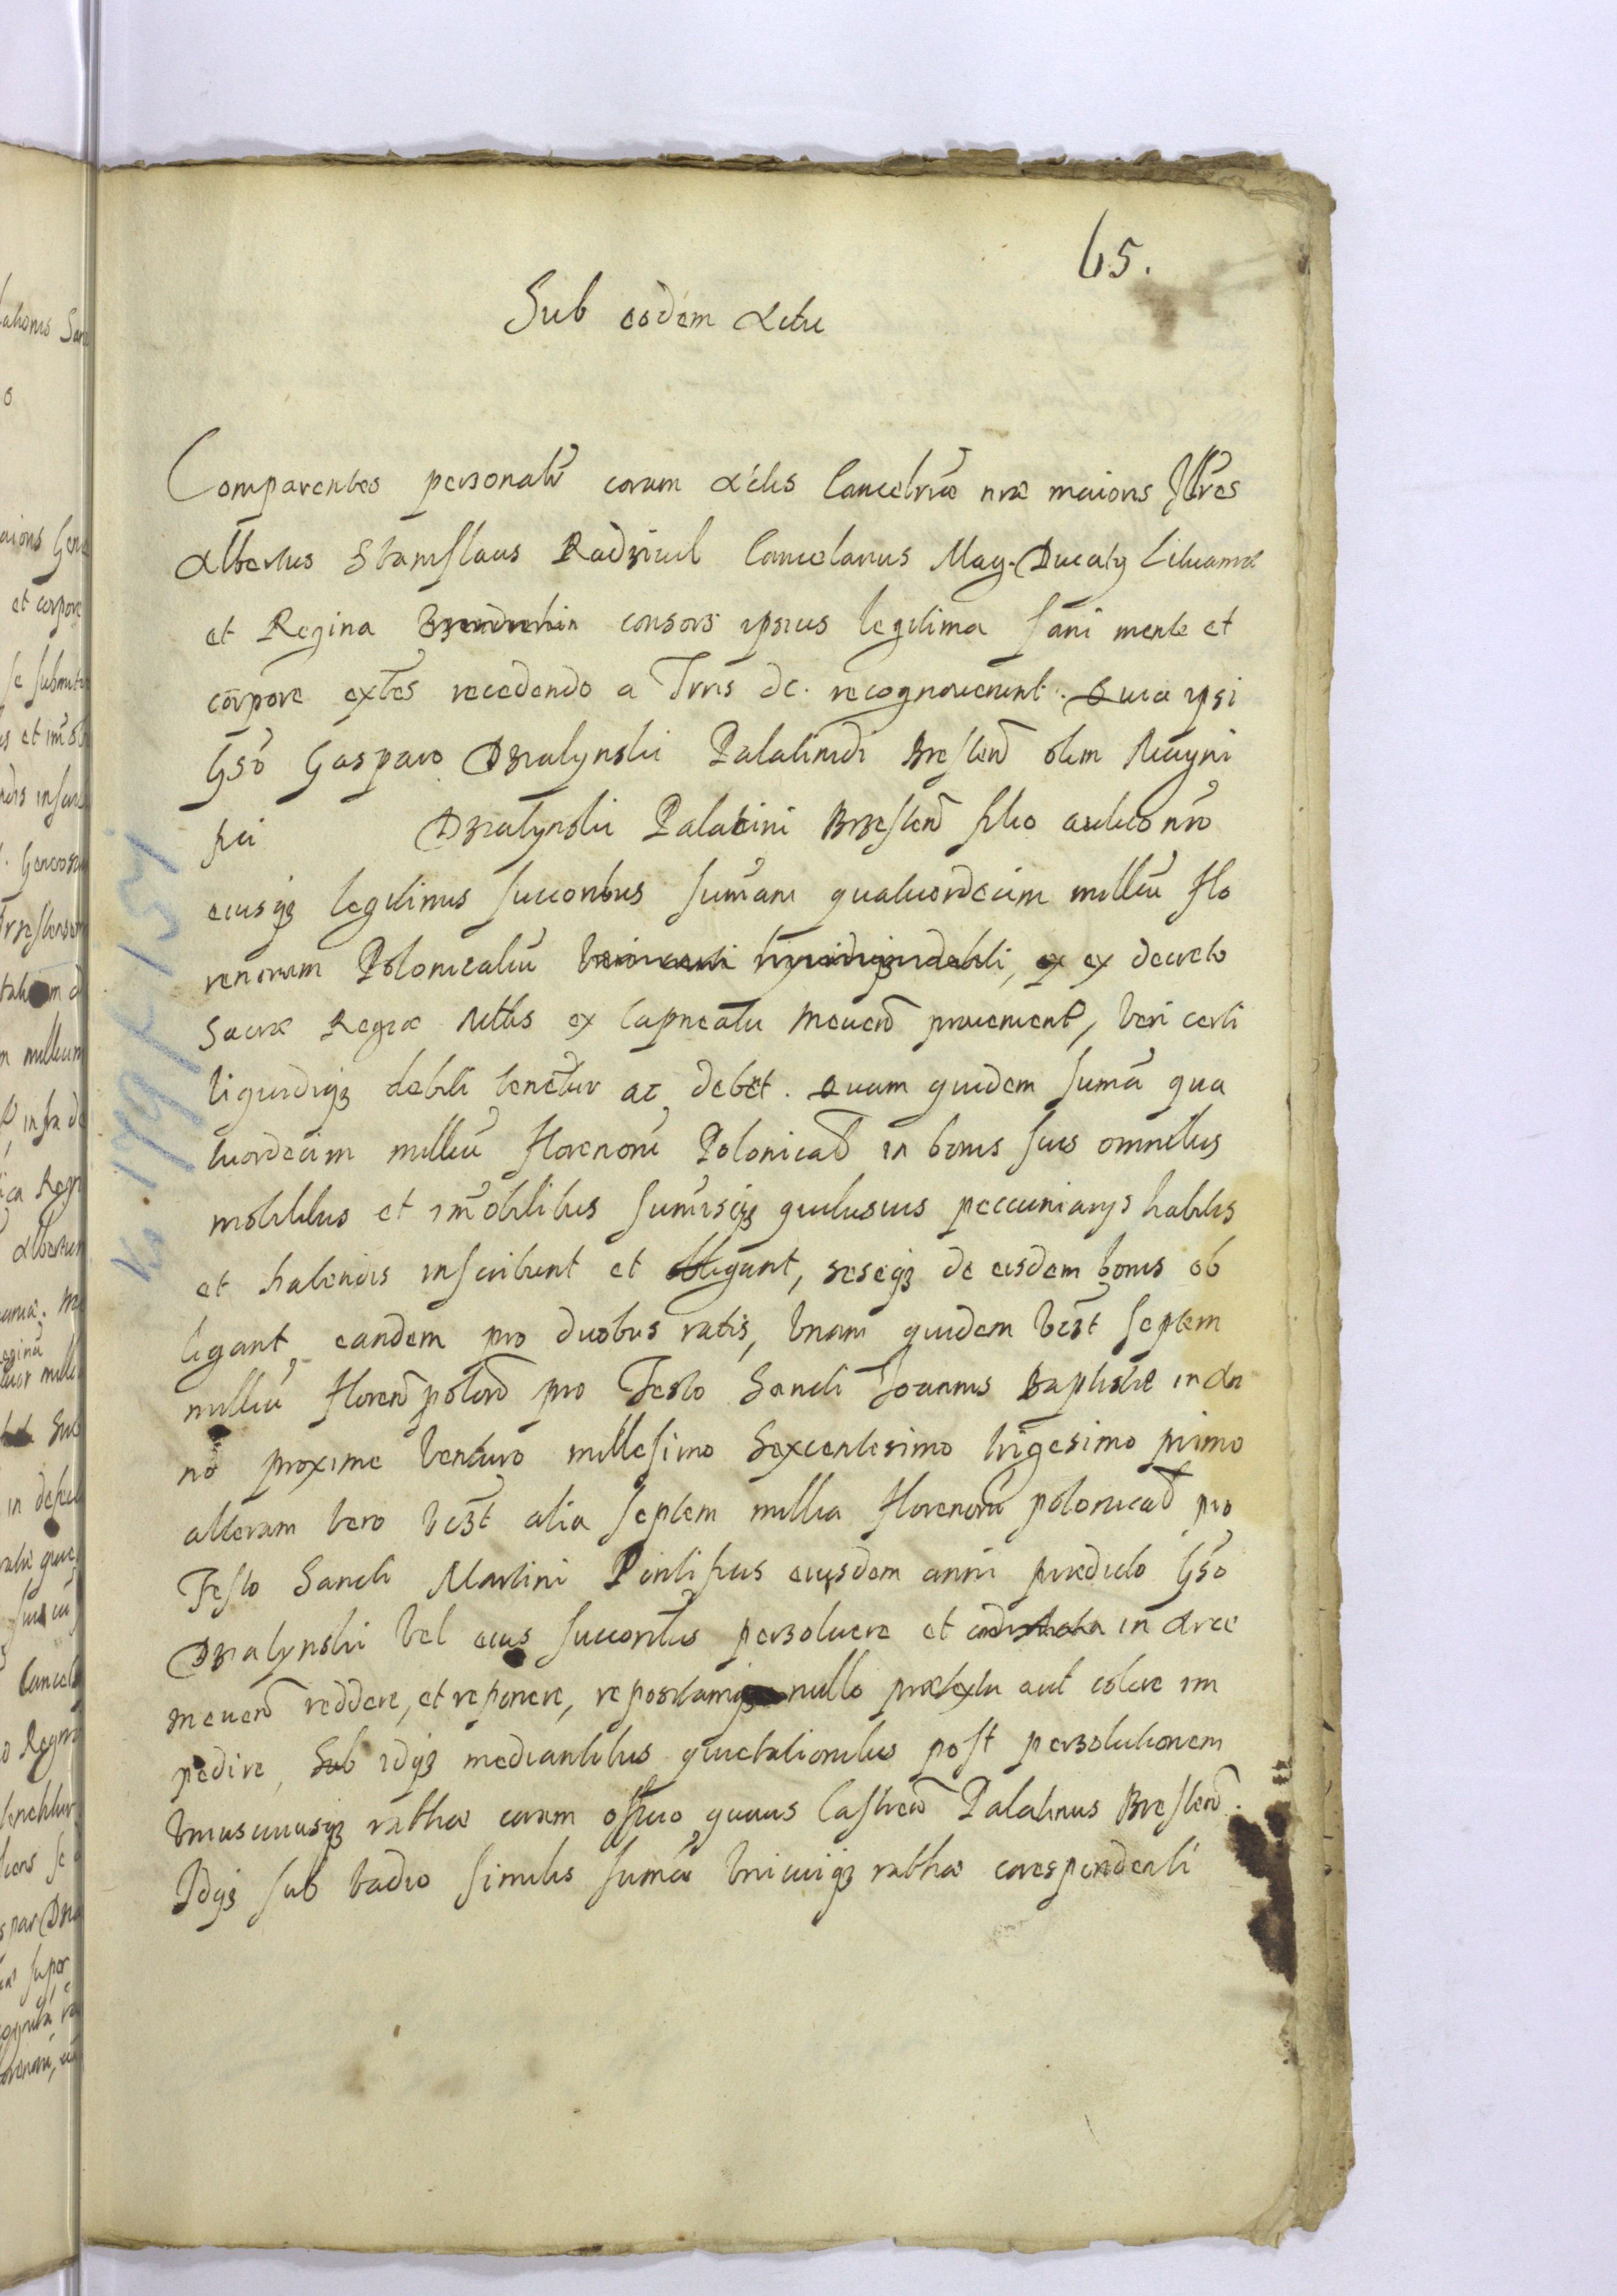 65.
Sub eodem Actu
Comparentes personalr̃ coram Actis Cancelriæ nræ maioris Illres
Albertus Stanislaus Radziwil Cancelarius Mag. Ducatꝰ Lituaniæ
et Regina consors ipsius legitima sani mente et
corpore extẽs recedendo a Trris &c. recognouerunt. Quia ipsi
Gso Gasparo Dzialynski Palatinidi Bresteñ olim Magni
fici Dzialynski Palatini Brzesteñ filio aulico nro
eiusqȝ legitimis succoribus sum̃am quatuordecim milliũ flo
renorum Polonicaliũ veri certi liquidiqȝ debiti, ex ex decreto
Sacræ Regiæ Mttis ex Capneatu Meueñ proueniente, veri certi
liquidiqȝ debiti tenetur ac debet. Quam quidem sumã qua
tuordecim milliũ florenorũ Polonical in bonis suis omnibus
mobilibus et im̃obilibus sum̃isqȝ quibusuis peccuniarys habitis
et habendis inscribunt et obligant, seseqȝ de eisdem bonis ob
ligant eandem pro duobus ratis, vnam quidem vizt septem
milliũ floreñ poloñ pro Festo Sancti Joannis Baptistæ in An
no proxime venturo millesimo sexcentesimo trigesimo primo
alteram vero vizt alia septem millia florenorũ polonical pro
Festo Sancti Martini Pontificis eiusdem anni prædicto Gso
Dzialynski vel eius succoribus persoluere et in Arce
Meueñ reddere, et reponere, repositamqȝ nullo prætextu aut colore im
pedire, Sub idqȝ mediantibus quietationibus post persolutionem
vniuscuiusqȝ rathæ coram officio quouis Castreñ Palatinus Bresteñ.
Idqȝ sub vadio similis sumæ vnicuiqȝ rathæ corespondenti
No 179 k 151